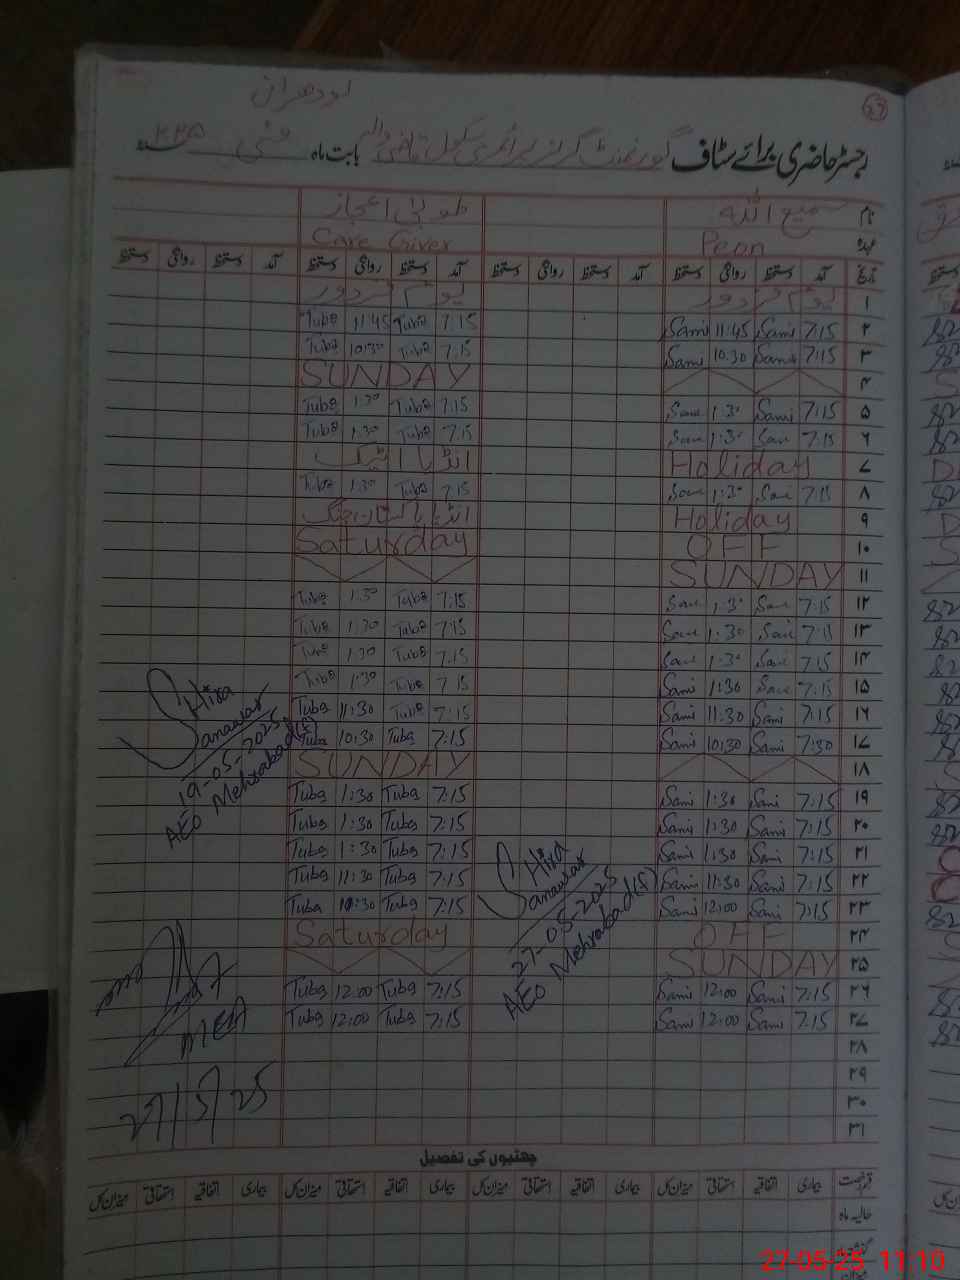 27
لودھراں
رجسٹر حاضری برائے سٹاف گورنمنٹ گرلز پرائمری سکول قاضی والہ بابت ماہ مئی
نام سمیع اللہ طوبیٰ اعجاز
عہدہ Peon Care Giver
تاریخ آمد دستخط روانگی دستخط آمد دستخط روانگی دستخط آمد دستخط روانگی دستخط آمد دستخط روانگی دستخط
۱ یوم مزدور یوم مزدور
۲ 7:15 Sami 11:45 Sami 7:15 Tuba 11:45 Tuba
۳ 7:15 Sami 10:30 Sami 7:15 Tuba 10:30 Tuba
۴ SUNDAY
۵ 7:15 Sami 1:30 Sami 7:15 Tuba 1:30 Tuba
۶ 7:15 Sami 1:30 Sami 7:15 Tuba 1:30 Tuba
۷ Holiday انڈیا اٹیک
۸ 7:15 Sami 1:30 Sami 7:15 Tuba 1:30 Tuba
۹ Holiday انڈیا پاکستان جنگ
۱۰ OFF Saturday
۱۱ SUNDAY
۱۲ 7:15 Sami 1:30 Sami 7:15 Tuba 1:30 Tuba
۱۳ 7:15 Sami 1:30 Sami 7:15 Tuba 1:30 Tuba
۱۴ 7:15 Sami 1:30 Sami 7:15 Tuba 1:30 Tuba
۱۵ 7:15 Sami 1:30 Sami 7:15 Tuba 1:30 Tuba
۱۶ 7:15 Sami 11:30 Sami 7:15 Tuba 11:30 Tuba
۱۷ 7:30 Sami 10:30 Sami 7:15 Tuba 10:30 Tuba
۱۸ SUNDAY
۱۹ 7:15 Sami 1:30 Sami 7:15 Tuba 1:30 Tuba
۲۰ 7:15 Sami 1:30 Sami 7:15 Tuba 1:30 Tuba
۲۱ 7:15 Sami 1:30 Sami 7:15 Tuba 1:30 Tuba
۲۲ 7:15 Sami 11:30 Sami 7:15 Tuba 11:30 Tuba
۲۳ 7:15 Sami 12:00 Sami 7:15 Tuba 10:30 Tuba
۲۴ OFF Saturday
۲۵ SUNDAY
۲۶ 7:15 Sami 12:00 Sami 7:15 Tuba 12:00 Tuba
۲۷ 7:15 Sami 12:00 Sami 7:15 Tuba 12:00 Tuba
۲۸
۲۹
۳۰
۳۱
Hira
Sanawar
19-05-2025
AEO Mehrabad(f)
Hira
Sanawar
27-05-2025
AEO Mehrabad(f)
MEA
چھٹیوں کی تفصیل
قسم رخصت بیماری اتفاقیہ استحقاقی میزان کل بیماری اتفاقیہ استحقاقی میزان کل بیماری اتفاقیہ استحقاقی میزان کل بیماری اتفاقیہ استحقاقی میزان کل
حالیہ ماہ
27-05-25 11:10